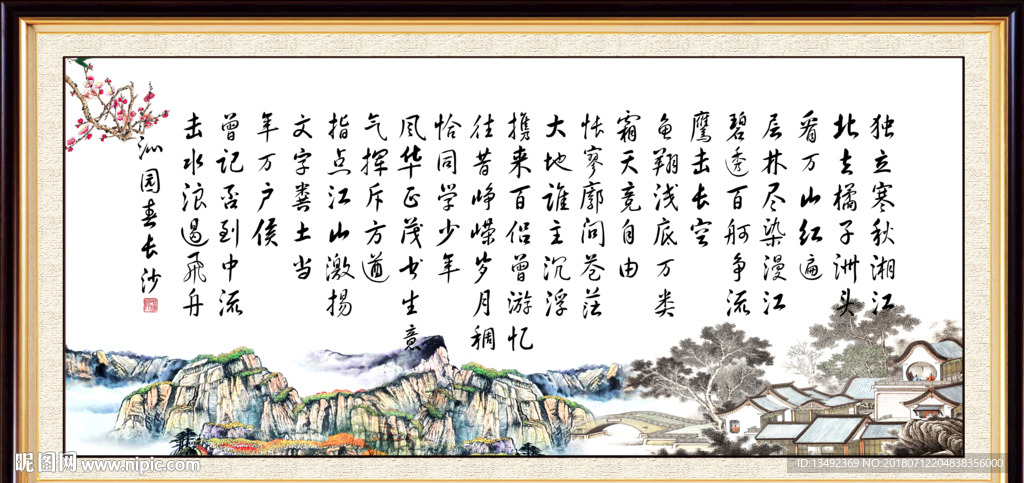 独立寒秋湘江
北去橘子洲头
看万山红遍
层林尽染漫江
碧透百舸争流
鹰击长空
鱼翔浅底万类
霜天竞自由
怅寥廓问苍茫
大地谁主沉浮
携来百侣曾游忆
往昔峥嵘岁月稠
恰同学少年
风华正茂书生意
气挥斥方遒
指点江山激扬
文字粪土当
年万户侯
曾记否到中流
击水浪遏飞舟
沁园春长沙
昵图网 www.nipic.com
ID:13492369 NO:20180712204838356000